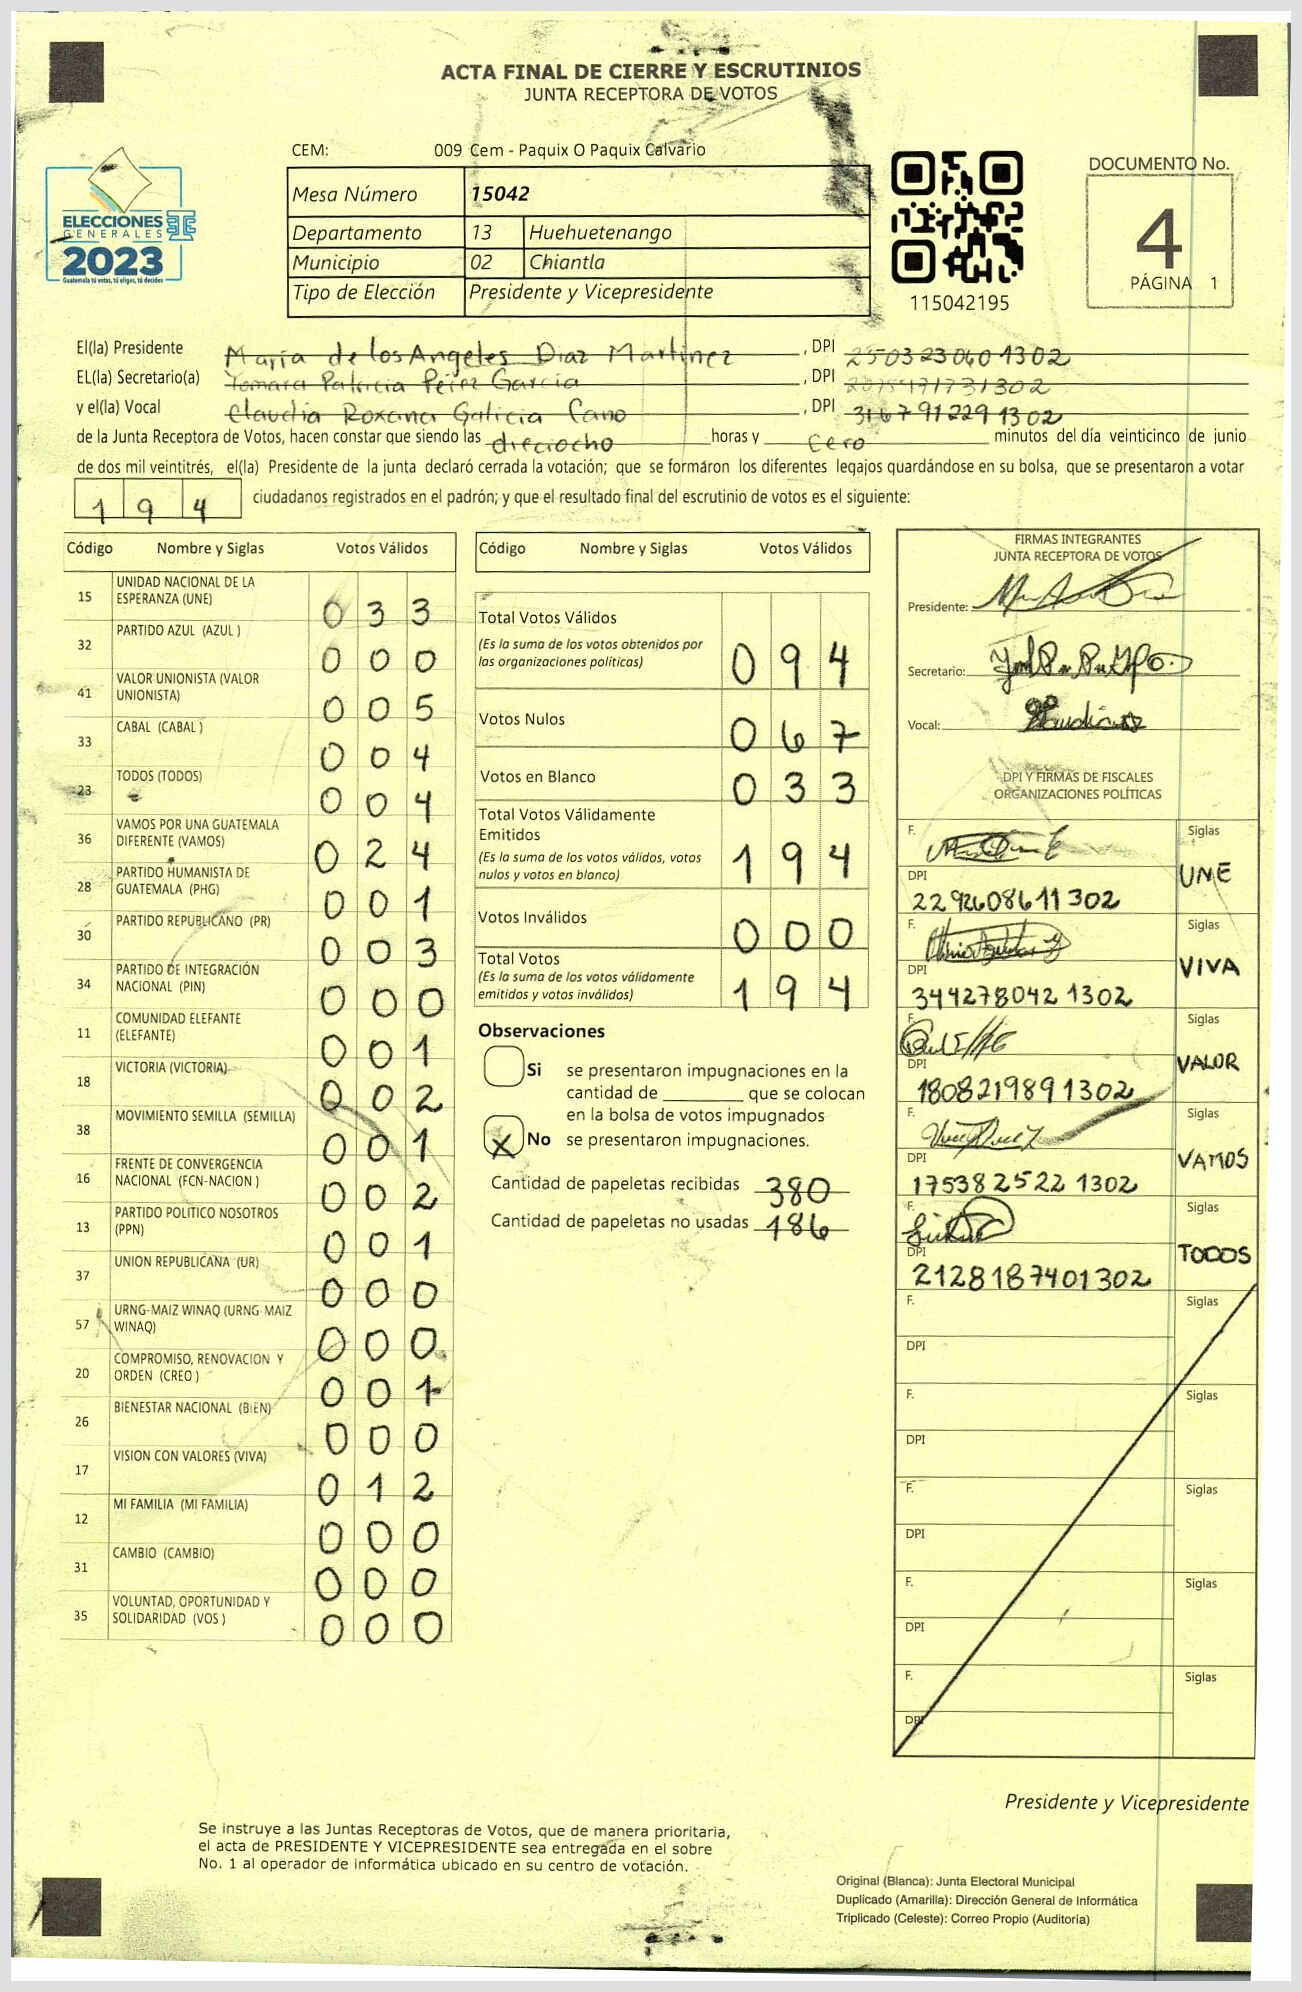 ACTA FINAL DE CIERRE Y ESCRUTINIOS
JUNTA RECEPTORA DE VOTOS
CEM: 009 Cem - Paquix O Paquix Calvario
ELECCIONES
GENERALES
2023
Guatemala tú votas, tú eliges, tú decides
Mesa Número 15042
Departamento 13 Huehuetenango
Municipio 02 Chiantla
Tipo de Elección Presidente y Vicepresidente
115042195
DOCUMENTO No.
4
PÁGINA 1
El(la) Presidente María de los Angeles Diaz Martinez, DPI 2503230401302
EL(la) Secretario(a) Tamara Patricia Pérez García, DPI
y el(la) Vocal Claudia Roxana Galicia Cano, DPI 3167912291302
de la Junta Receptora de Votos, hacen constar que siendo las dieciocho horas y cero minutos del día veinticinco de junio
de dos mil veintitrés, el(la) Presidente de la junta declaró cerrada la votación; que se formaron los diferentes legajos quardándose en su bolsa, que se presentaron a votar
194 ciudadanos registrados en el padrón; y que el resultado final del escrutinio de votos es el siguiente:
Código Nombre y Siglas Votos Válidos
15 UNIDAD NACIONAL DE LA
ESPERANZA (UNE) 033
32 PARTIDO AZUL (AZUL ) 000
41 VALOR UNIONISTA (VALOR
UNIONISTA) 005
33 CABAL (CABAL ) 004
23 TODOS (TODOS) 004
36 VAMOS POR UNA GUATEMALA
DIFERENTE (VAMOS) 024
28 PARTIDO HUMANISTA DE
GUATEMALA (PHG) 001
30 PARTIDO REPUBLICANO (PR) 003
34 PARTIDO DE INTEGRACIÓN
NACIONAL (PIN) 000
11 COMUNIDAD ELEFANTE
(ELEFANTE) 001
18 VICTORIA (VICTORIA) 002
38 MOVIMIENTO SEMILLA (SEMILLA) 001
16 FRENTE DE CONVERGENCIA
NACIONAL (FCN-NACION ) 002
13 PARTIDO POLITICO NOSOTROS
(PPN) 001
37 UNION REPUBLICANA (UR) 000
57 URNG-MAIZ WINAQ (URNG MAIZ
WINAQ) 000
20 COMPROMISO, RENOVACION Y
ORDEN (CREO ) 001
26 BIENESTAR NACIONAL (BIEN) 000
17 VISION CON VALORES (VIVA) 012
12 MI FAMILIA (MI FAMILIA) 000
31 CAMBIO (CAMBIO) 000
35 VOLUNTAD, OPORTUNIDAD Y
SOLIDARIDAD (VOS ) 000
Código Nombre y Siglas Votos Válidos
Total Votos Válidos
(Es la suma de los votos obtenidos por
las organizaciones políticas) 094
Votos Nulos 067
Votos en Blanco 033
Total Votos Válidamente
Emitidos
(Es la suma de los votos válidos, votos
nulos y votos en blanco) 194
Votos Inválidos 000
Total Votos
(Es la suma de los votos válidamente
emitidos y votos inválidos) 194
Observaciones
Si se presentaron impugnaciones en la
cantidad de ________ que se colocan
en la bolsa de votos impugnados
X No se presentaron impugnaciones.
Cantidad de papeletas recibidas 380
Cantidad de papeletas no usadas 186
FIRMAS INTEGRANTES
JUNTA RECEPTORA DE VOTOS
Presidente:
Secretario:
Vocal:
DPI Y FIRMAS DE FISCALES
ORGANIZACIONES POLÍTICAS
F. Siglas
UNE
DPI
2292608611302
F. Siglas
VIVA
DPI
3442780421302
F. Siglas
VALOR
DPI
1808219891302
F. Siglas
VAMOS
DPI
1753825221302
F. Siglas
TODOS
DPI
2128187401302
F. Siglas
DPI
F. Siglas
DPI
F. Siglas
DPI
F. Siglas
DPI
F. Siglas
DPI
Presidente y Vicepresidente
Se instruye a las Juntas Receptoras de Votos, que de manera prioritaria,
el acta de PRESIDENTE Y VICEPRESIDENTE sea entregada en el sobre
No. 1 al operador de informática ubicado en su centro de votación.
Original (Blanca): Junta Electoral Municipal
Duplicado (Amarilla): Dirección General de Informática
Triplicado (Celeste): Correo Propio (Auditoría)